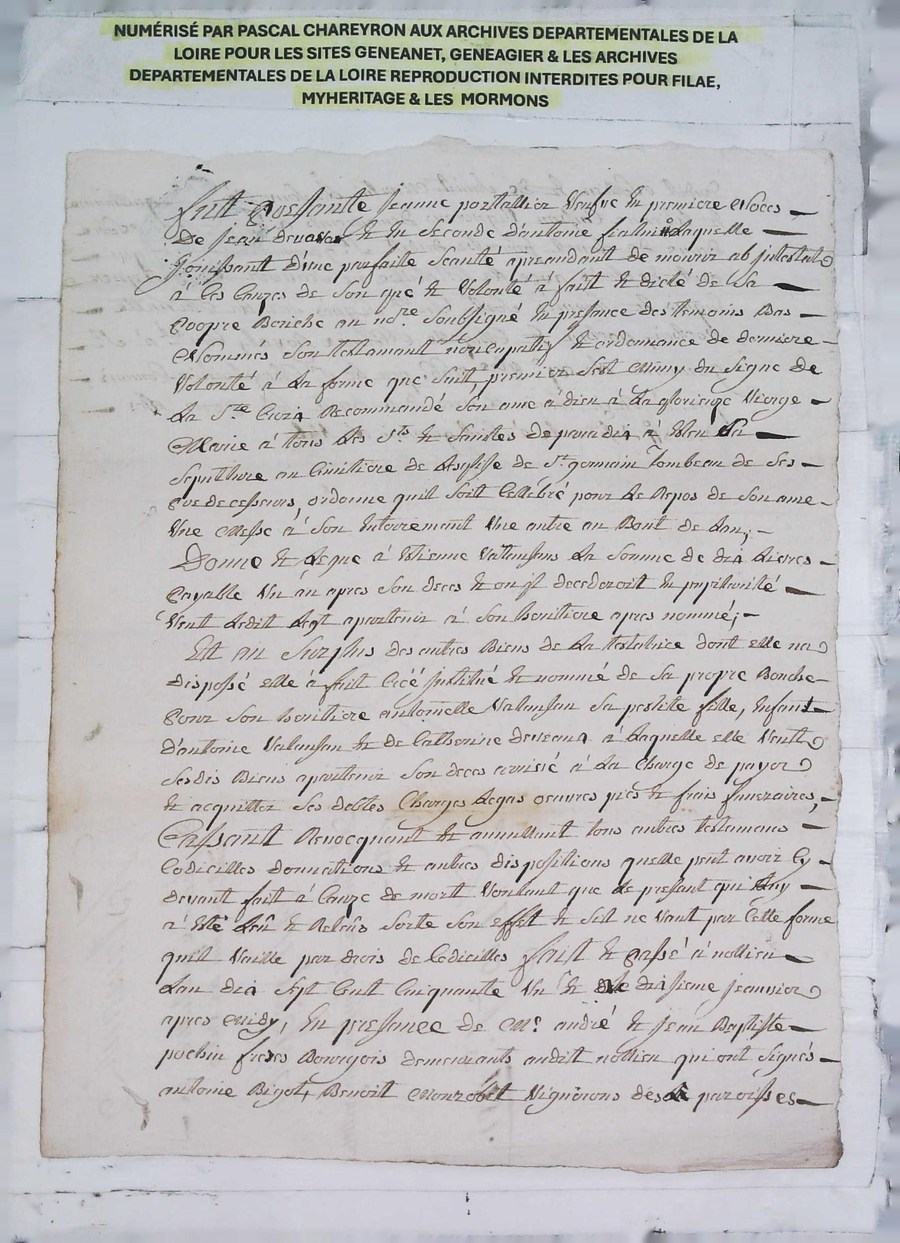 NUMÉRISÉ PAR PASCAL CHAREYRON AUX ARCHIVES DEPARTEMENTALES DE LA
LOIRE POUR LES SITES GENEANET, GENEAGIER & LES ARCHIVES
DEPARTEMENTALES DE LA LOIRE REPRODUCTION INTERDITES POUR FILAE,
MYHERITAGE & LES MORMONS
fut presante jeanne portallier veufve en premiere noces
De jean et en seconde d'antoine laquelle
jouissant d'une parfaite santé aprendant de mourir ab intestat
à ces cauzes de son gré et volonté à fait et dicté de sa
propre bouche au nore. soubsigné en presance des temoins bas
nommés son testament noncupatif et ordonnance de derniere
volonté à la forme que suit, premier s'est muny du signe de
la Ste. croix recommandé son ame à dieu à la glorieuze vierge
marie à tous les Sts et saintes de paradix à sa
sepulture au cimitiere de l'eglise de St. germain tombeau de ses
predecesseurs, ordonne quil soit cellebré pour le repos de son ame
une messe à son enterrement une autre au bout de l'an;
Donne et legue à etienne la somme de dix livres
payable un an apres son deces et ou il decederoit en pupilarité
veut ledit legt apartenir à son heritiere apres nommé;
Et au surplus des autres biens de la testatrice dont elle na
disposé elle à fait créé institué et nommé de sa propre bouche
pour son heritiere antoinette valansan sa petite fille, enfant
d'antoine valansan et de catherine deveaux à laquelle elle veut
sesdis biens apartenir son deces arrivé à la charge de payer
et acquitter ses debtes charges legas oeuvres pies et frais funeraires,
Cassant revocquant et annullant tous autres testamens
codicilles donnations et autres dispositions quelle peut avoir cy
devant fait à cauze de mort voulant que le present qui luy
à eté leu et releus sorte son effet et sil ne vaut par cette forme
quil vaille par droit de codicilles fait et passé à nollieu
lan dix sept cent cinquante un et le dixsieme jeanvier
apres midy, en presance de Mrs. andré et jean Baptiste
pochin freres Bourgois demeurants audit nollieu qui ont signés
antoine Bigot, Benoit vignerons des paroisses